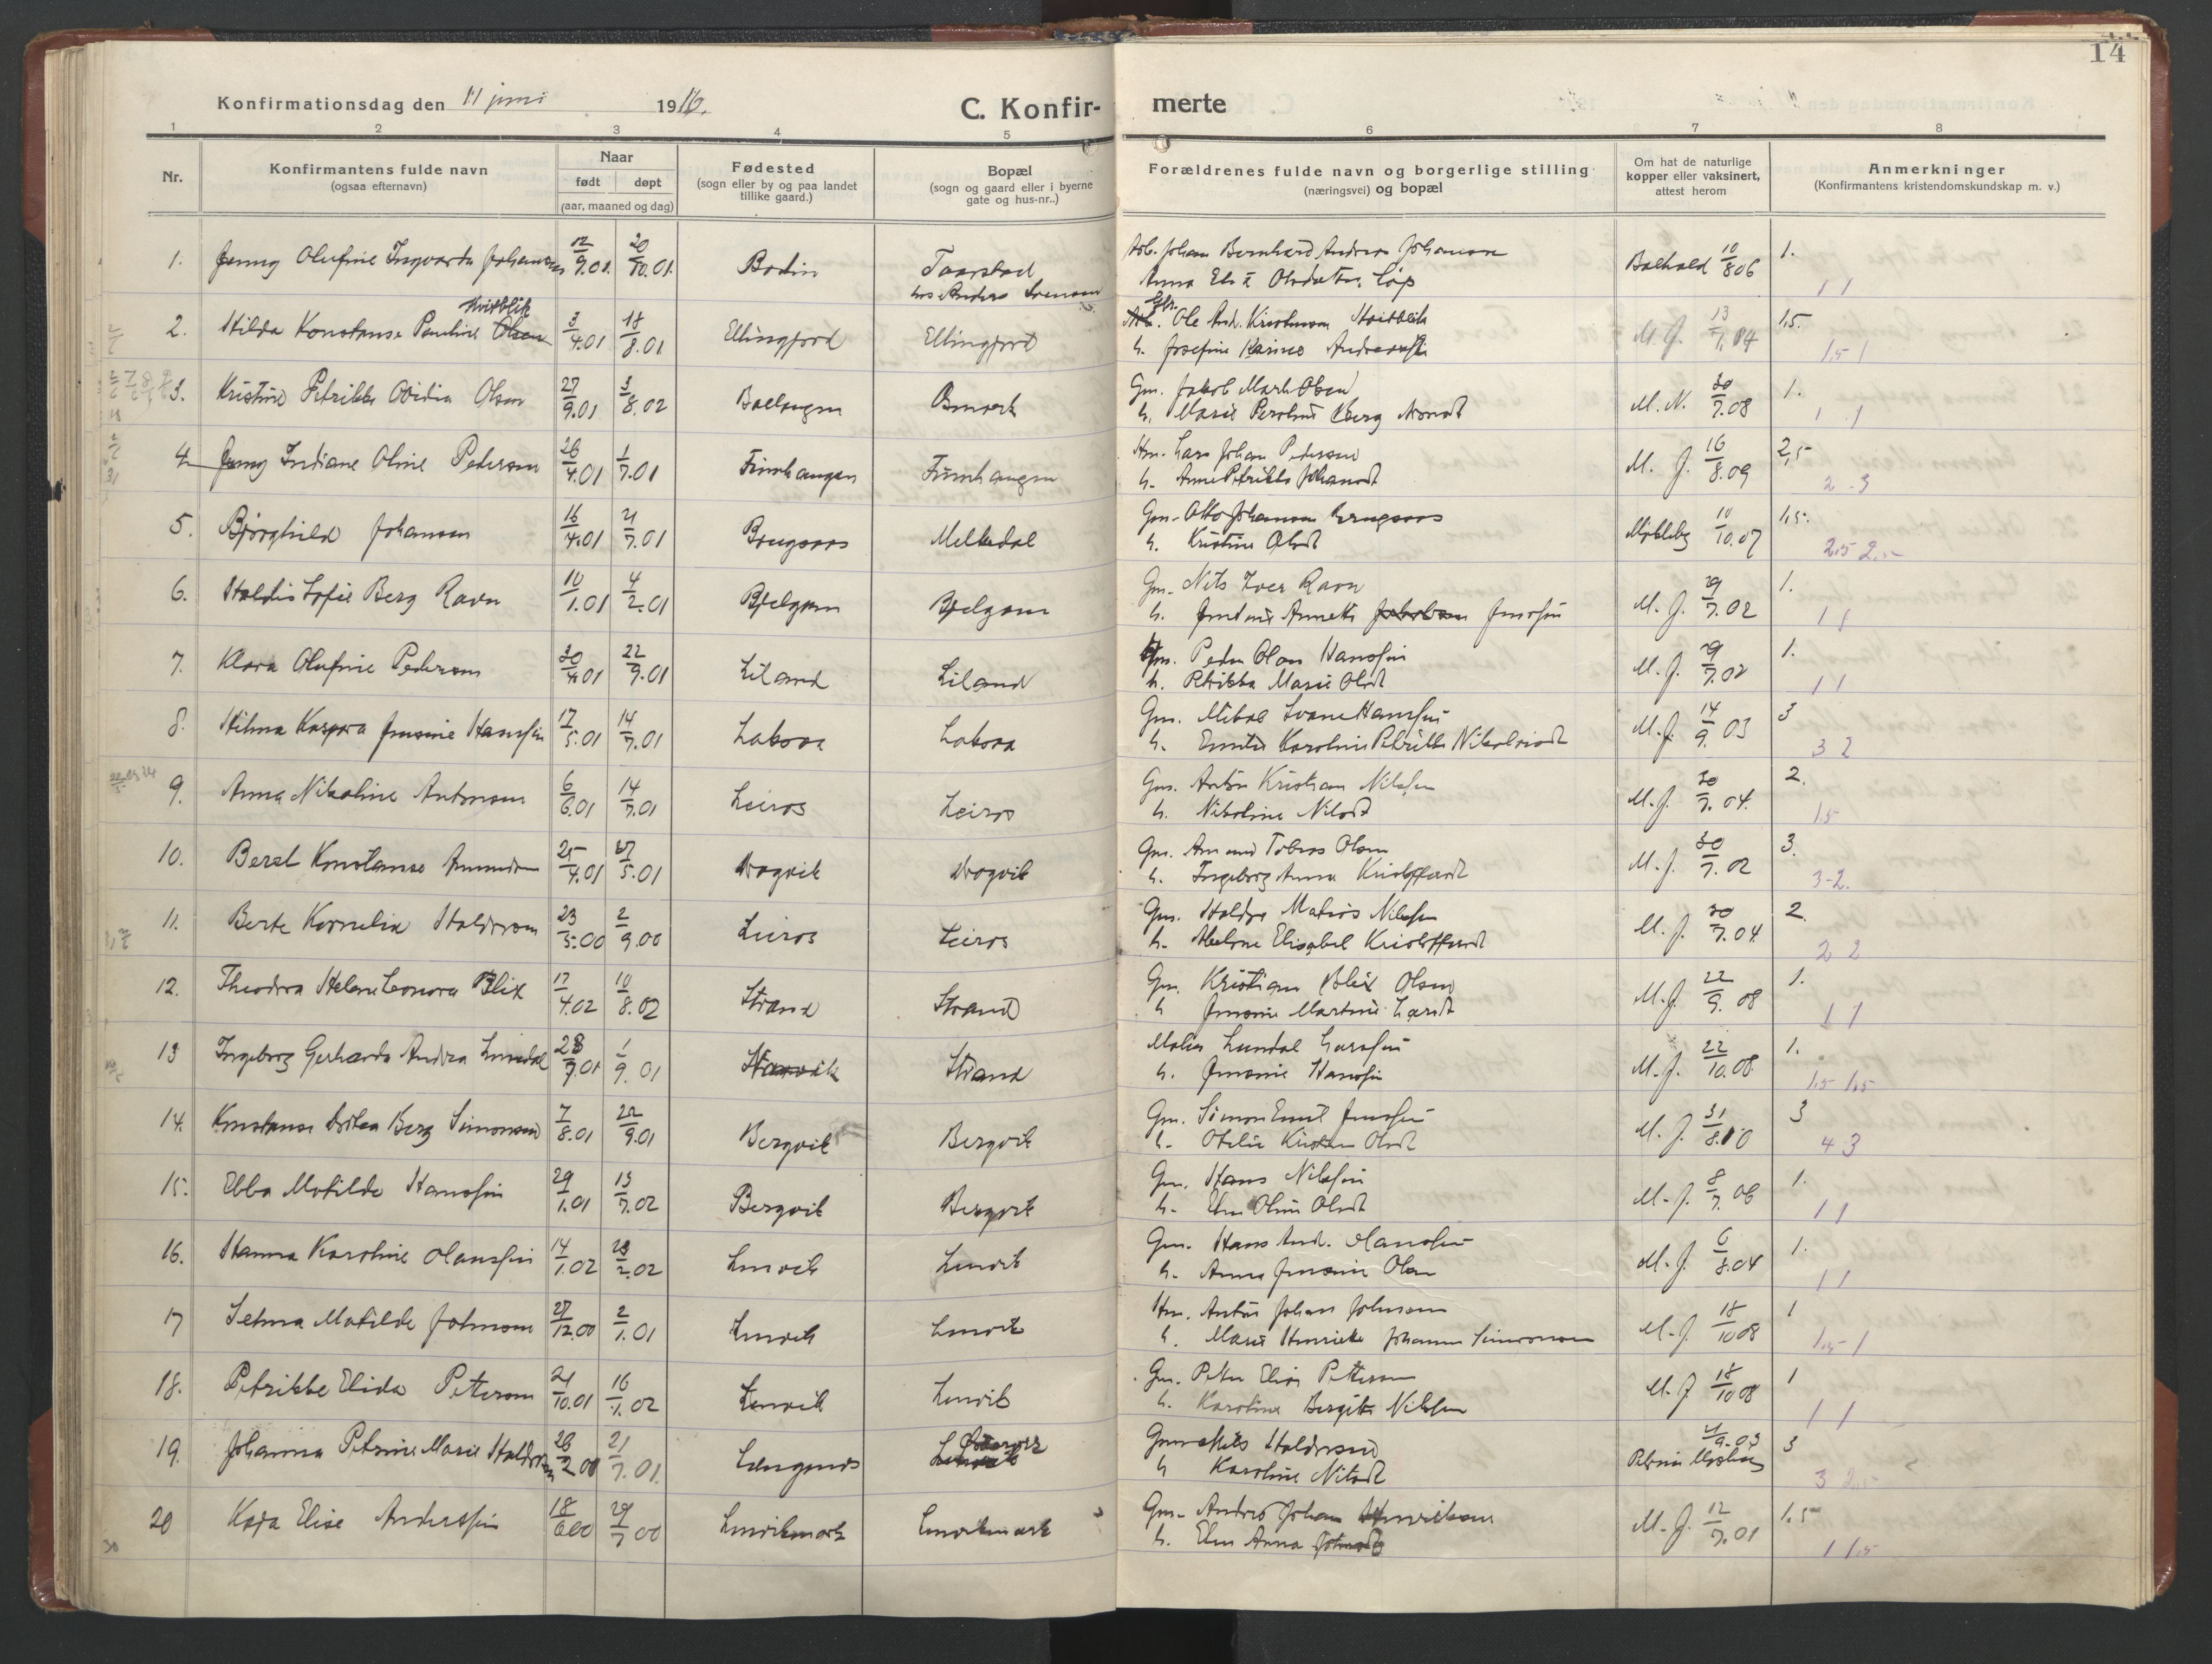 14
Konfirmationsdag den 11 juni 1916.
C. Konfir-
merte
1 2 3 4 5 6 7 8
Nr.
Konfirmantens fulde navn
(ogsaa efternavn)
Naar
født døpt
(aar, maaned og dag)
Fødested
(sogn eller by og paa landet
tillike gaard.)
Bopæl
(sogn og gaard eller i byerne
gate og hus-nr..)
Forældrenes fulde navn og borgerlige stilling
(næringsvei) og bopæl
Om hat de naturlige
kopper eller vaksinert,
attest herom
Anmerkninger
(Konfirmantens kristendomskundskap m. v.)
1. Jenny Olufine Ingvarda Johansen 12/9.01. 20/10.01. Bodin Taarstad
hos Anders
Arb. Johan Bernhard Andreas Johansen
Anna Olsdatter, Løp
10/8 06 1.
1 1
Kvitblik
2. Hilda Konstanse Pauline Olsen 3/4.01 18/8.01 Ellingfjord Ellingfjord
Gbr. Ole And. Kristensen Kvitblik
h. Josefine
M. J. 13/7.04 1,5.
1,5 1
3. Kristine Petrikke Ovidia Olsen 27/9.01 3/8.02 Ballangen
Gm. Jakob Mark Olsen
h. Marie Berg
M. N. 30/7.08 1.
1 1
4. Jenny Indiane Oline Pedersen 26/4.01 1/7.01 Finnhaugen Finnhaugen
Hm. Lars Johan Pedersen
h. Anne Petrikke Johansdt
M. J. 16/8.09 2,5
2 3
5. Bjørghild Johansen 16/4.01 21/7.01 Melkedal
Gm. Otto Johansen
h. Kristine Olsdt
10/10.07 1,5.
2,5 2,5
6. Haldis Sofie Berg Ravn 10/1.01 4/2.01 Bjelgam Bjelgam
Gm. Nils Iver Ravn
h. Annette Jakobsen Jensen
M. J. 29/7.02 1.
1 1
7. Klara Olufine Pedersen 30/4.01 22/9.01 Liland Liland
Gm. Peder Olaus Hansen
h. Petrikke Marie Olsdt
M. J. 29/7.02 1.
1 1
8. Hilma Kaspara Jensine Hansen 17/5.01 14/7.01 Laksaa Laksaa
Gm. Mikal Hansen
h. Emilie Karoline Petrikke Nikolaisdt
M. J. 14/9. 03 3
3 2
9. Anna Nikoline Antonsen 6/6.01 14/7.01 Leiros Leiros
Gm. Anton Kristian Nilsen
h. Nikoline Nilsdt
M. J. 30/7. 04. 2.
1,5
10. Beret Konstanse Amundsen 25/4.01 27/5.01 Vogvik Vogvik
Gm. Amund Tobias Olsen
h. Ingeborg Anna Kristoffersdt
M. J. 30/7. 02 3.
3-2.
11. Berte Kornelia Haldorsen 23/5.00 2/9.00 Leiros Leiros
Gm. Haldor Matias Nilsen
h. Elisabet Kristoffersdt
M. J. 30/7.04. 2.
2 2
12. Theodora Helene Leonora Blix 17/4.02 10/8.02 Strand Strand
Gm. Kristian Blix Olsen
h Jensine Martine Larsdt
M. J. 22/9. 08 1.
1 1
13 Ingeborg Gerharda Andrea Lundal 28/7.01 1/9. 01 Narvik Strand
Matias Lundal Larsen
h. Jensine Hansen
M. J. 22/10.08 1.
1,5 1,5
14. Konstanse Berg Simonsen 7/8.01 22/9.01 Bergvik Bergvik
Gm. Simon Emil Jensen
h. Otelie Olsdt
M. J. 31/8.10 3
4 3
15. Ebba Matilde Hansen 29/1.01 13/7.02 Bergvik Bergvik
Gm. Hans Nilsen
h. Oline Olsdt
M. J. 8/7. 06 1.
1 1
16. Hanna Karoline Hansen 14/1.02 23/2.02 Lenvik Lenvik
Gm. Hans And. Hansen
h. Anna Jensine Olsen
M. J. 6/8.04 1.
1 1
17 Selma Matilde Johnsen 27/12.00 2/1.01 Lenvik Lenvik
Hm. Anton Johan Johnsen
h. Marie Henrikke Johanna Simonsen
M. J. 18/10 08 1
1,5 1
18. Petrikke Elida Pettersen 21/10.01 16/1. 02 Lenvik Lenvik
Gm. Peter Elias Pettersen
h. Karoline Bergitte Nilsen
M. J 18/10 08 1
1 1
19. Johanna Petrine Marie Haldorsen 26/2 00 21/7.01. Lengenes Lenvik
Gm. Nils Haldorsen
h Karoline Nilsdt
21/9.03 3
3 2,5
20 Kaja Elise Andersen 18/6 00 29/7 00 Lenvikmark Lenvikmark
Gm. Anders Johan Henriksen
h. Anna Johnsdt
M. J. 12/7.01 1,5
1 1,5